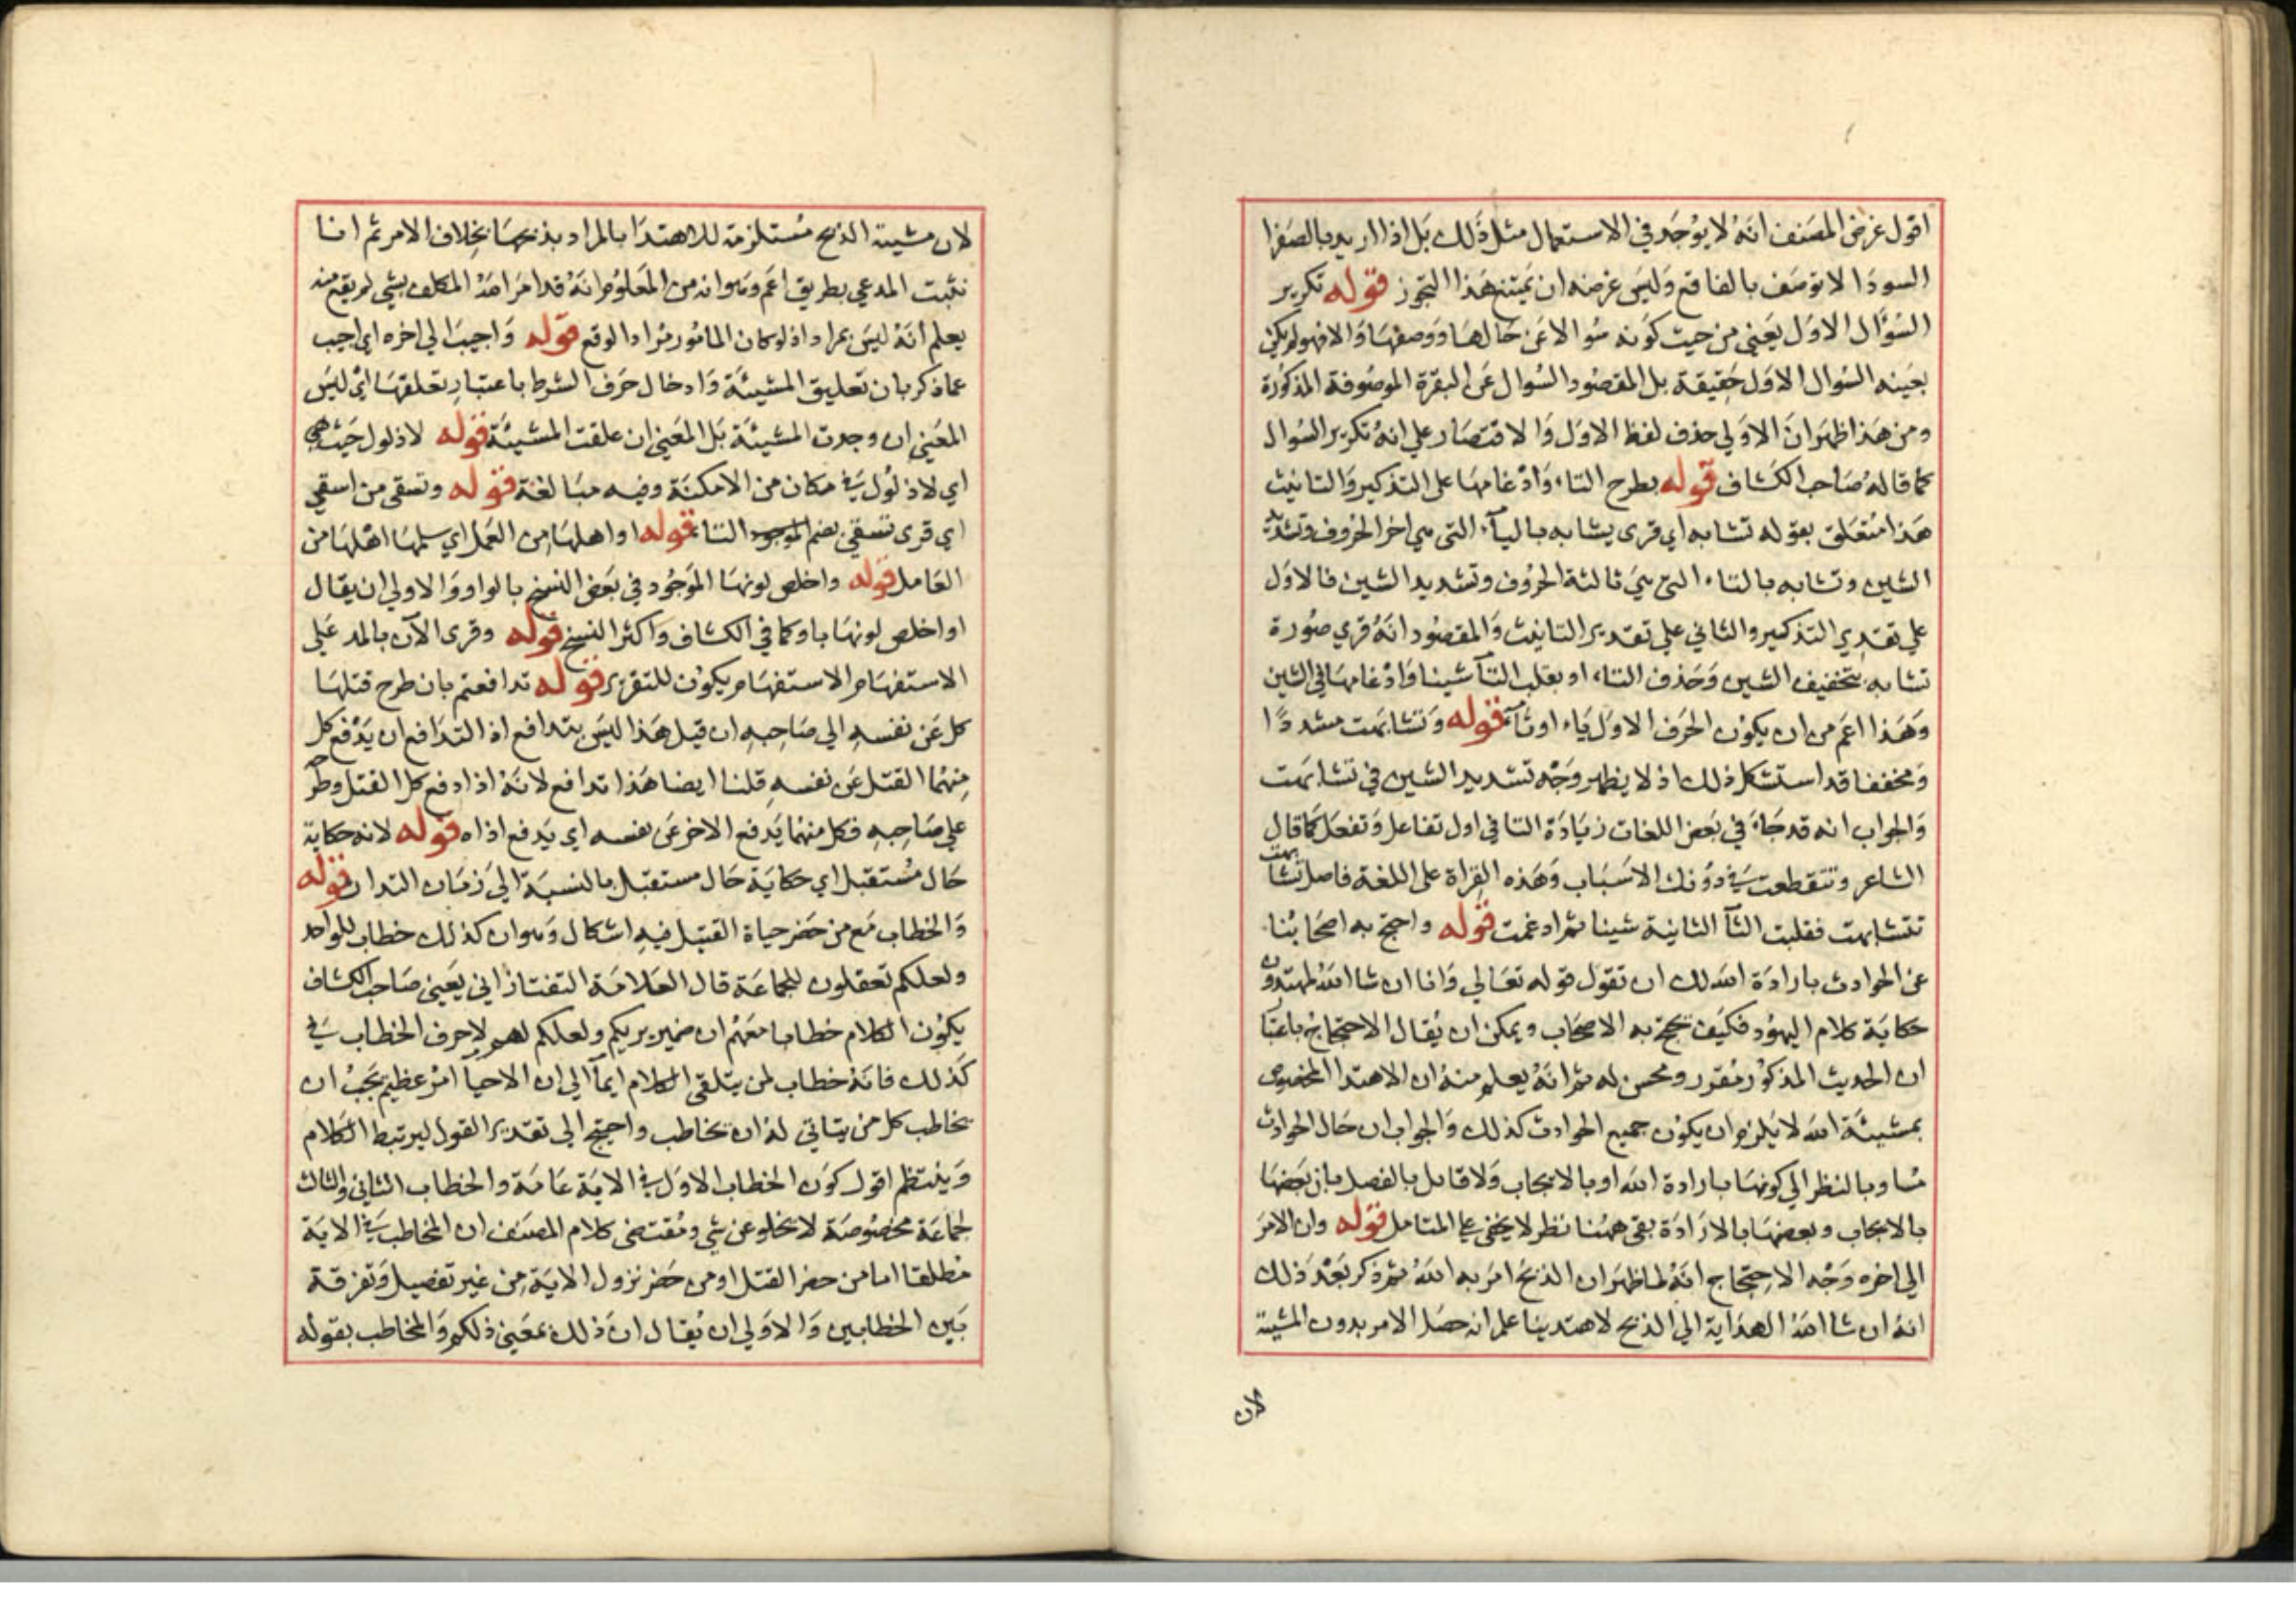 اقول غرض المصنف انه لا يوجد في الاستعمال مثل ذلك بل اذا اريد بالصفرا
السودا لا توصف بالفاقع وليس غرضه ان يمتنع هذا التجوز قوله تكرير
السؤال الاول يعني من حيث كونه سوالا عن حالها ووصفها والا فهو لم يكن
بعينه السوال الاول حقيقة بل المقصود السوال عن البقرة الموصوفة المذكورة
ومن هذا ظهر ان الاولي حذف لفظ الاول والاقتصار علي انه تكرير السوال
كما قاله صاحب الكشاف قوله بطرح التاء وادغامها على التذكير والتانيث
هذا متعلق بقوله تشابه اي قرى يشابه بالياء التى هي اخر الحروف وتشديد
الشين وتشابه بالتاء التي هي ثالثة الحروف وتشديد الشين فالاول
علي تقدير التذكير والثاني علي تقدير التانيث والمقصود انه قري صورة
تشابه بتخفيف الشين وحذف التاء او بقلب التآ شينا وادغامها في الشين
وهذا اعم من ان يكون الحرف الاول ياء او تآء قوله وتشابهت مشددا
ومخففا قد استشكل ذلك اذ لا يظهر وجه تشديد الشين في تشابهت
والجواب انه قد جاء في بعض اللغات زيادة التا في اول تفاعل وتفعل كما قال
الشاعر وتتقطعت في دونك الاسباب وهذه القراة على اللغة فاصل تشابهت
تتشابهت فقلبت التآ الثانية شينا ثم ادغمت قوله واحتج به اصحابنا
عن الحوادث بارادة الله لك ان تقول قوله تعالي وانا ان شا الله لمهتدون
حكاية كلام اليهود فكيف يحتج به الاصحاب ويمكن ان يقال الاحتجاج باعتبا
ان الحديث المذكور مقرر ومحسن له ثم انه يعلم منه ان الاهتدا المخصوص
بمشيئة الله لا يلزم ان يكون جميع الحوادث كذلك والجواب ان حال الحوادث
مساو بالنظر الي كونها بارادة الله او بالايجاب ولا قايل بالفصل بان بعضها
بالايجاب وبعضها بالارادة بقى ههنا نظر لا يخفي علي المتامل قوله وان الامر
الي اخره وجه الاحتجاج انه لما ظهر ان الذبح امر به الله ثم ذكر بعد ذلك
انه ان شا الله الهداية الي الذبح لاهتدينا علم انه حصل الامر بدون المشية
لان
لان مشيته الذبح مستلزمة للاهتدا بالمراد بذبحها بخلاف الامر ثم انا
نثبت المدعي بطريق اعم وهو انه من المعلوم انه قد امر الله المكلف بشي لم يقع منه
يعلم انه ليس بمراد اذ لو كان المامور مرادا لوقع قوله واجيب الي اخره اي اجيب
عما ذكر بان تعليق المشيئة وادخال حرف الشرط باعتبار تعلقها اي ليس
المعني ان وجدت المشيئة بل المعني ان علقت المشيئة قوله لا ذلول حيث هي
اي لا ذلول في مكان من الامكنة وفيه مبالغة قوله وتسقى من اسقي
اي قرى تسقي بضم الموجود التاء قوله او اهلها من العمل اي سلمها اهلها من
العامل قوله واخلص لونها الموجود في بعض النسخ بالواو والاولي ان يقال
او اخلص لونها باو كما في الكشاف واكثر النسخ قوله وقرى الآن بالمد علي
الاستفهام والاستفهام يكون للتقرير قوله تدافعتم بان طرح قتلها
كل عن نفسه الي صاحبه ان قيل هذا ليس بتدافع اذ التدافع ان يدفع كل
منهما القتل عن نفسه قلنا ايضا هذا تدافع لانه اذا دفع كل القتل وطرحه
علي صاحبه فكل منهما يدفع الاخر عن نفسه اي يدفع اذاه قوله لانه حكاية
حال مستقبل اي حكاية حال مستقبل بالنسبة الي زمان التدارئ قوله
والخطاب مع من حضر حياة القتيل فيه اشكال وهو ان كذلك خطاب للواحد
ولعلكم تعقلون للجماعة قال العلامة التفتازاني يعني صاحب الكشاف
يكون الكلام خطابا معهم ان ضمير يريكم ولعلكم لهم لا حرف الخطاب في
كذلك فانه خطاب لمن يتلقى الكلام ايمآ الي ان الاحيآ امر عظيم يجب ان
يخاطب كل من يتاتي له ان يخاطب واحتج الى تقدير القول ليرتبط الكلام
وينتظم اقول كون الخطاب الاول في الاية عامة والخطاب الثاني والثالث
لجماعة مخصوصة لا يخلو عن شي ومقتضى كلام المصنف ان المخاطب في الاية
مطلقا اما من حضر القتل او من حضر نزول الاية من غير تفصيل وتفرقة
بين الخطابين والاولي ان يقال ان ذلك بمعني ذلكم والمخاطب بقوله